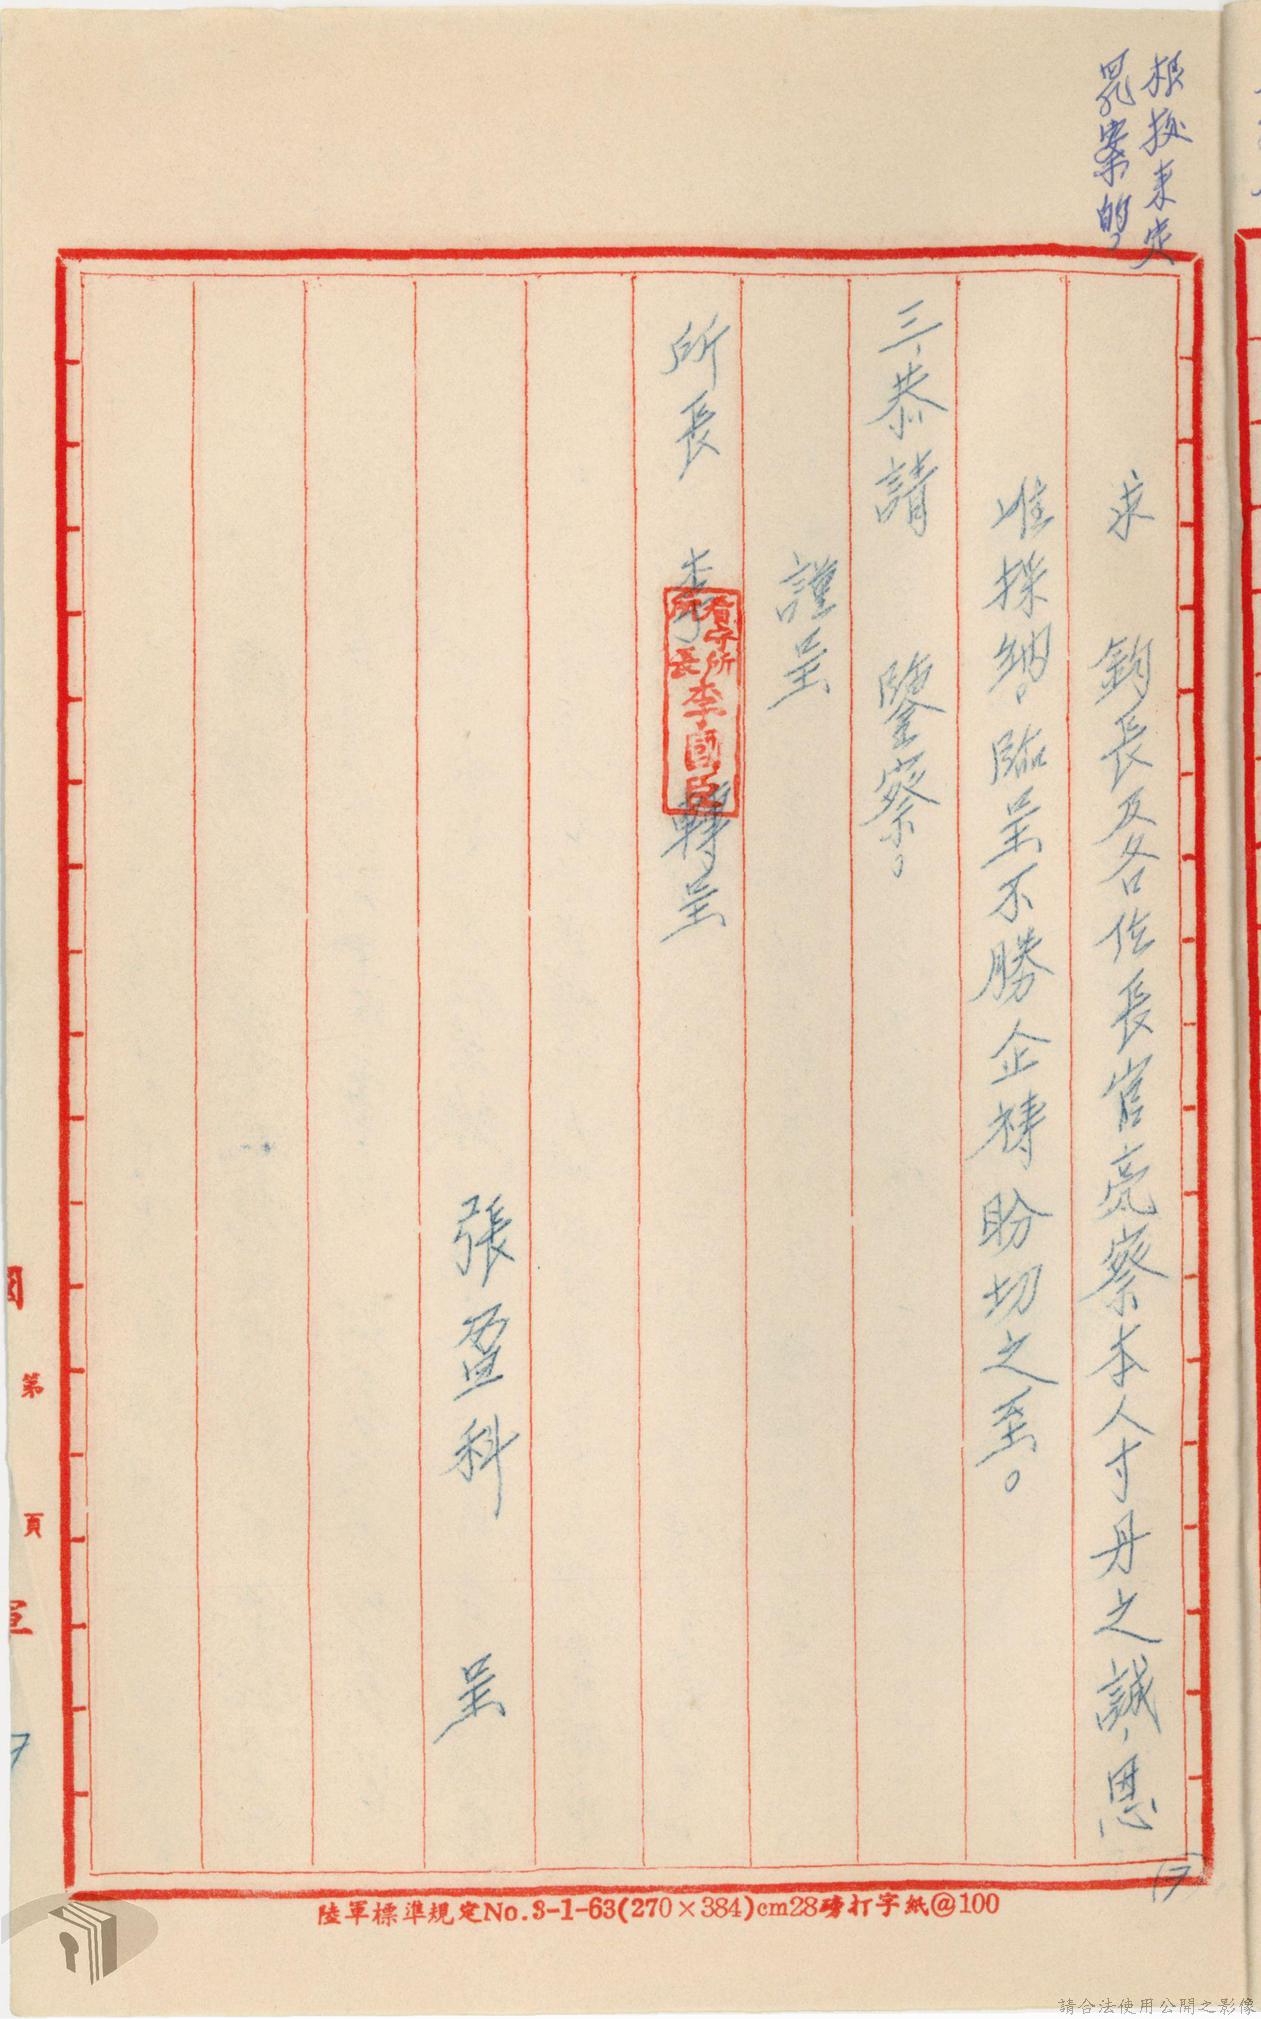 根据来定
罷案的,
求 鈞長及各位長官亮察本人寸丹之誠,恩
准採納。臨呈不勝企禱盼切之至。
三、恭請 鑒察。
謹呈
所長 李 轉呈
看守所
所長 李國臣
張盈科 呈
(7)
第 頁
7
陸軍標準規定No.3-1-63(270×384)cm28磅打字紙@100
請合法使用公開之影像